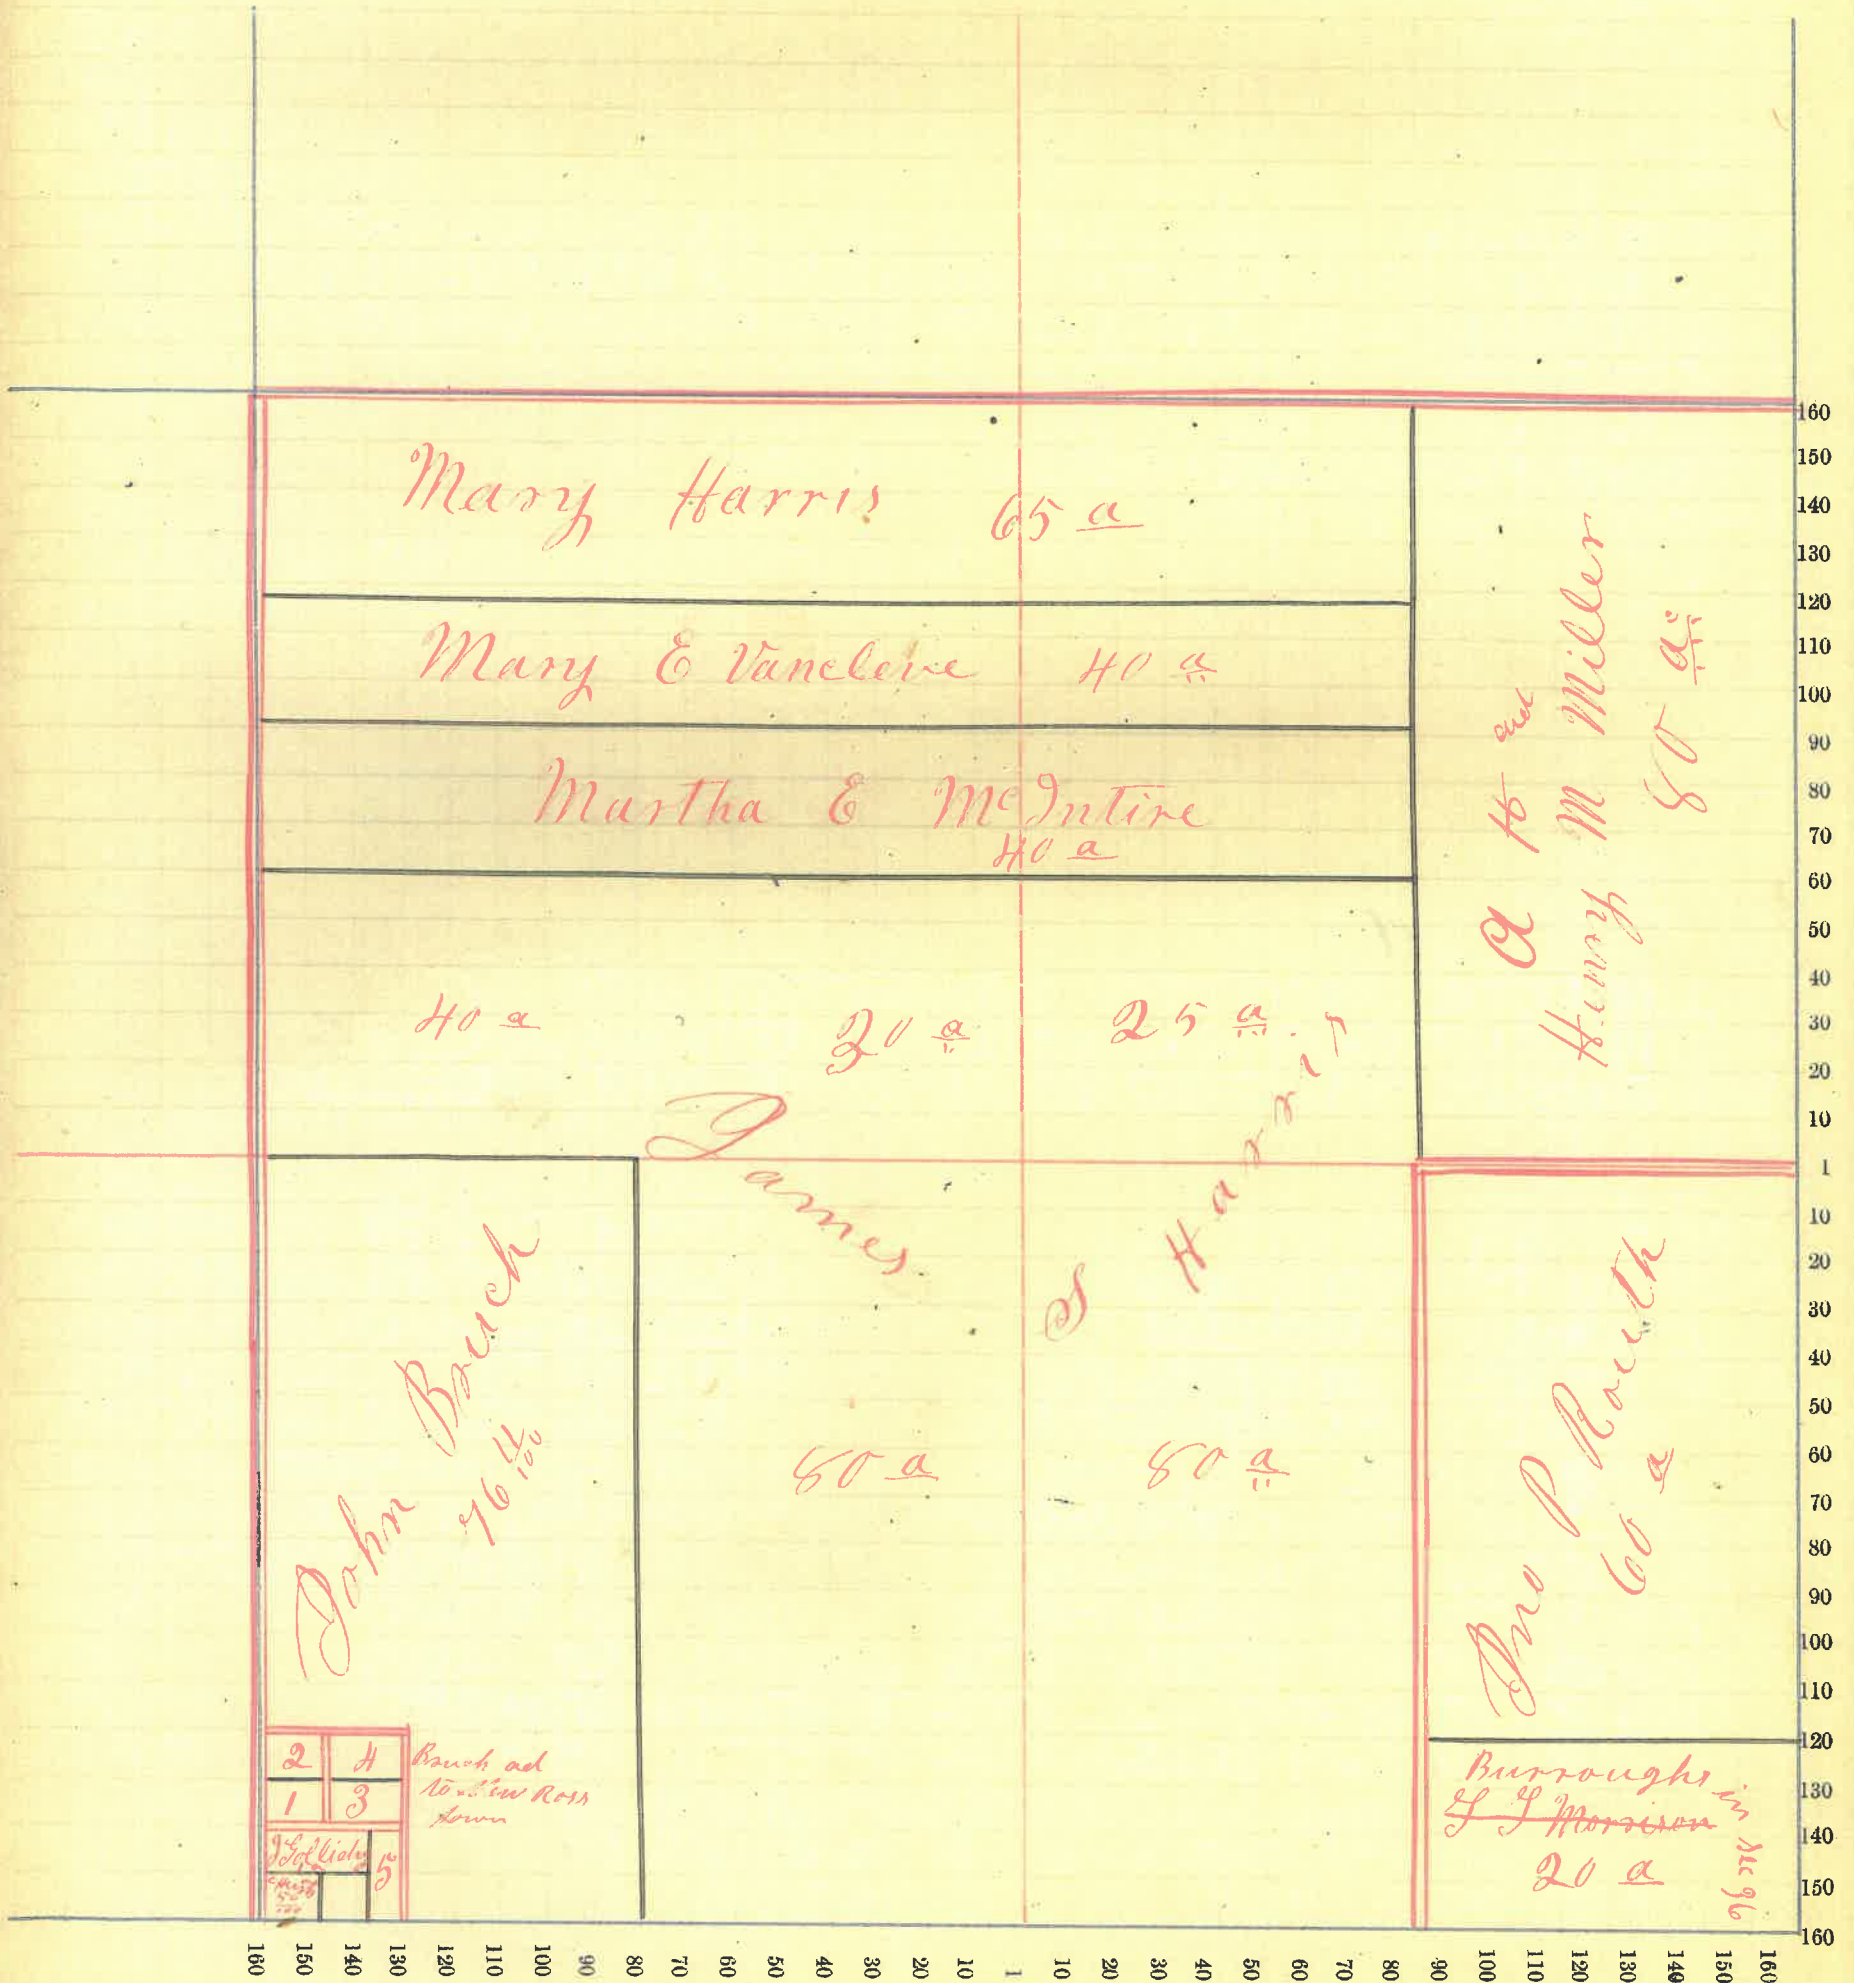 Mary Harris 65 a
Mary E Vancleve 40 a
Martha E McIntire
40 a
A H and
Henry M Miller
80 a
40 a
20 a
25 a
James S Harris
80 a
80 a
John Bruch
76 11/100
Jno P Routh
60 a
2
4
1
3
5
Bruch ad
to New Ross
town
Burroughs
20 a
in sec 36
160
150
140
130
120
110
100
90
80
70
60
50
40
30
20
10
1
10
20
30
40
50
60
70
80
90
100
110
120
130
140
150
160
160
150
140
130
120
110
100
90
80
70
60
50
40
30
20
10
1
10
20
30
40
50
60
70
80
90
100
110
120
130
140
150
160